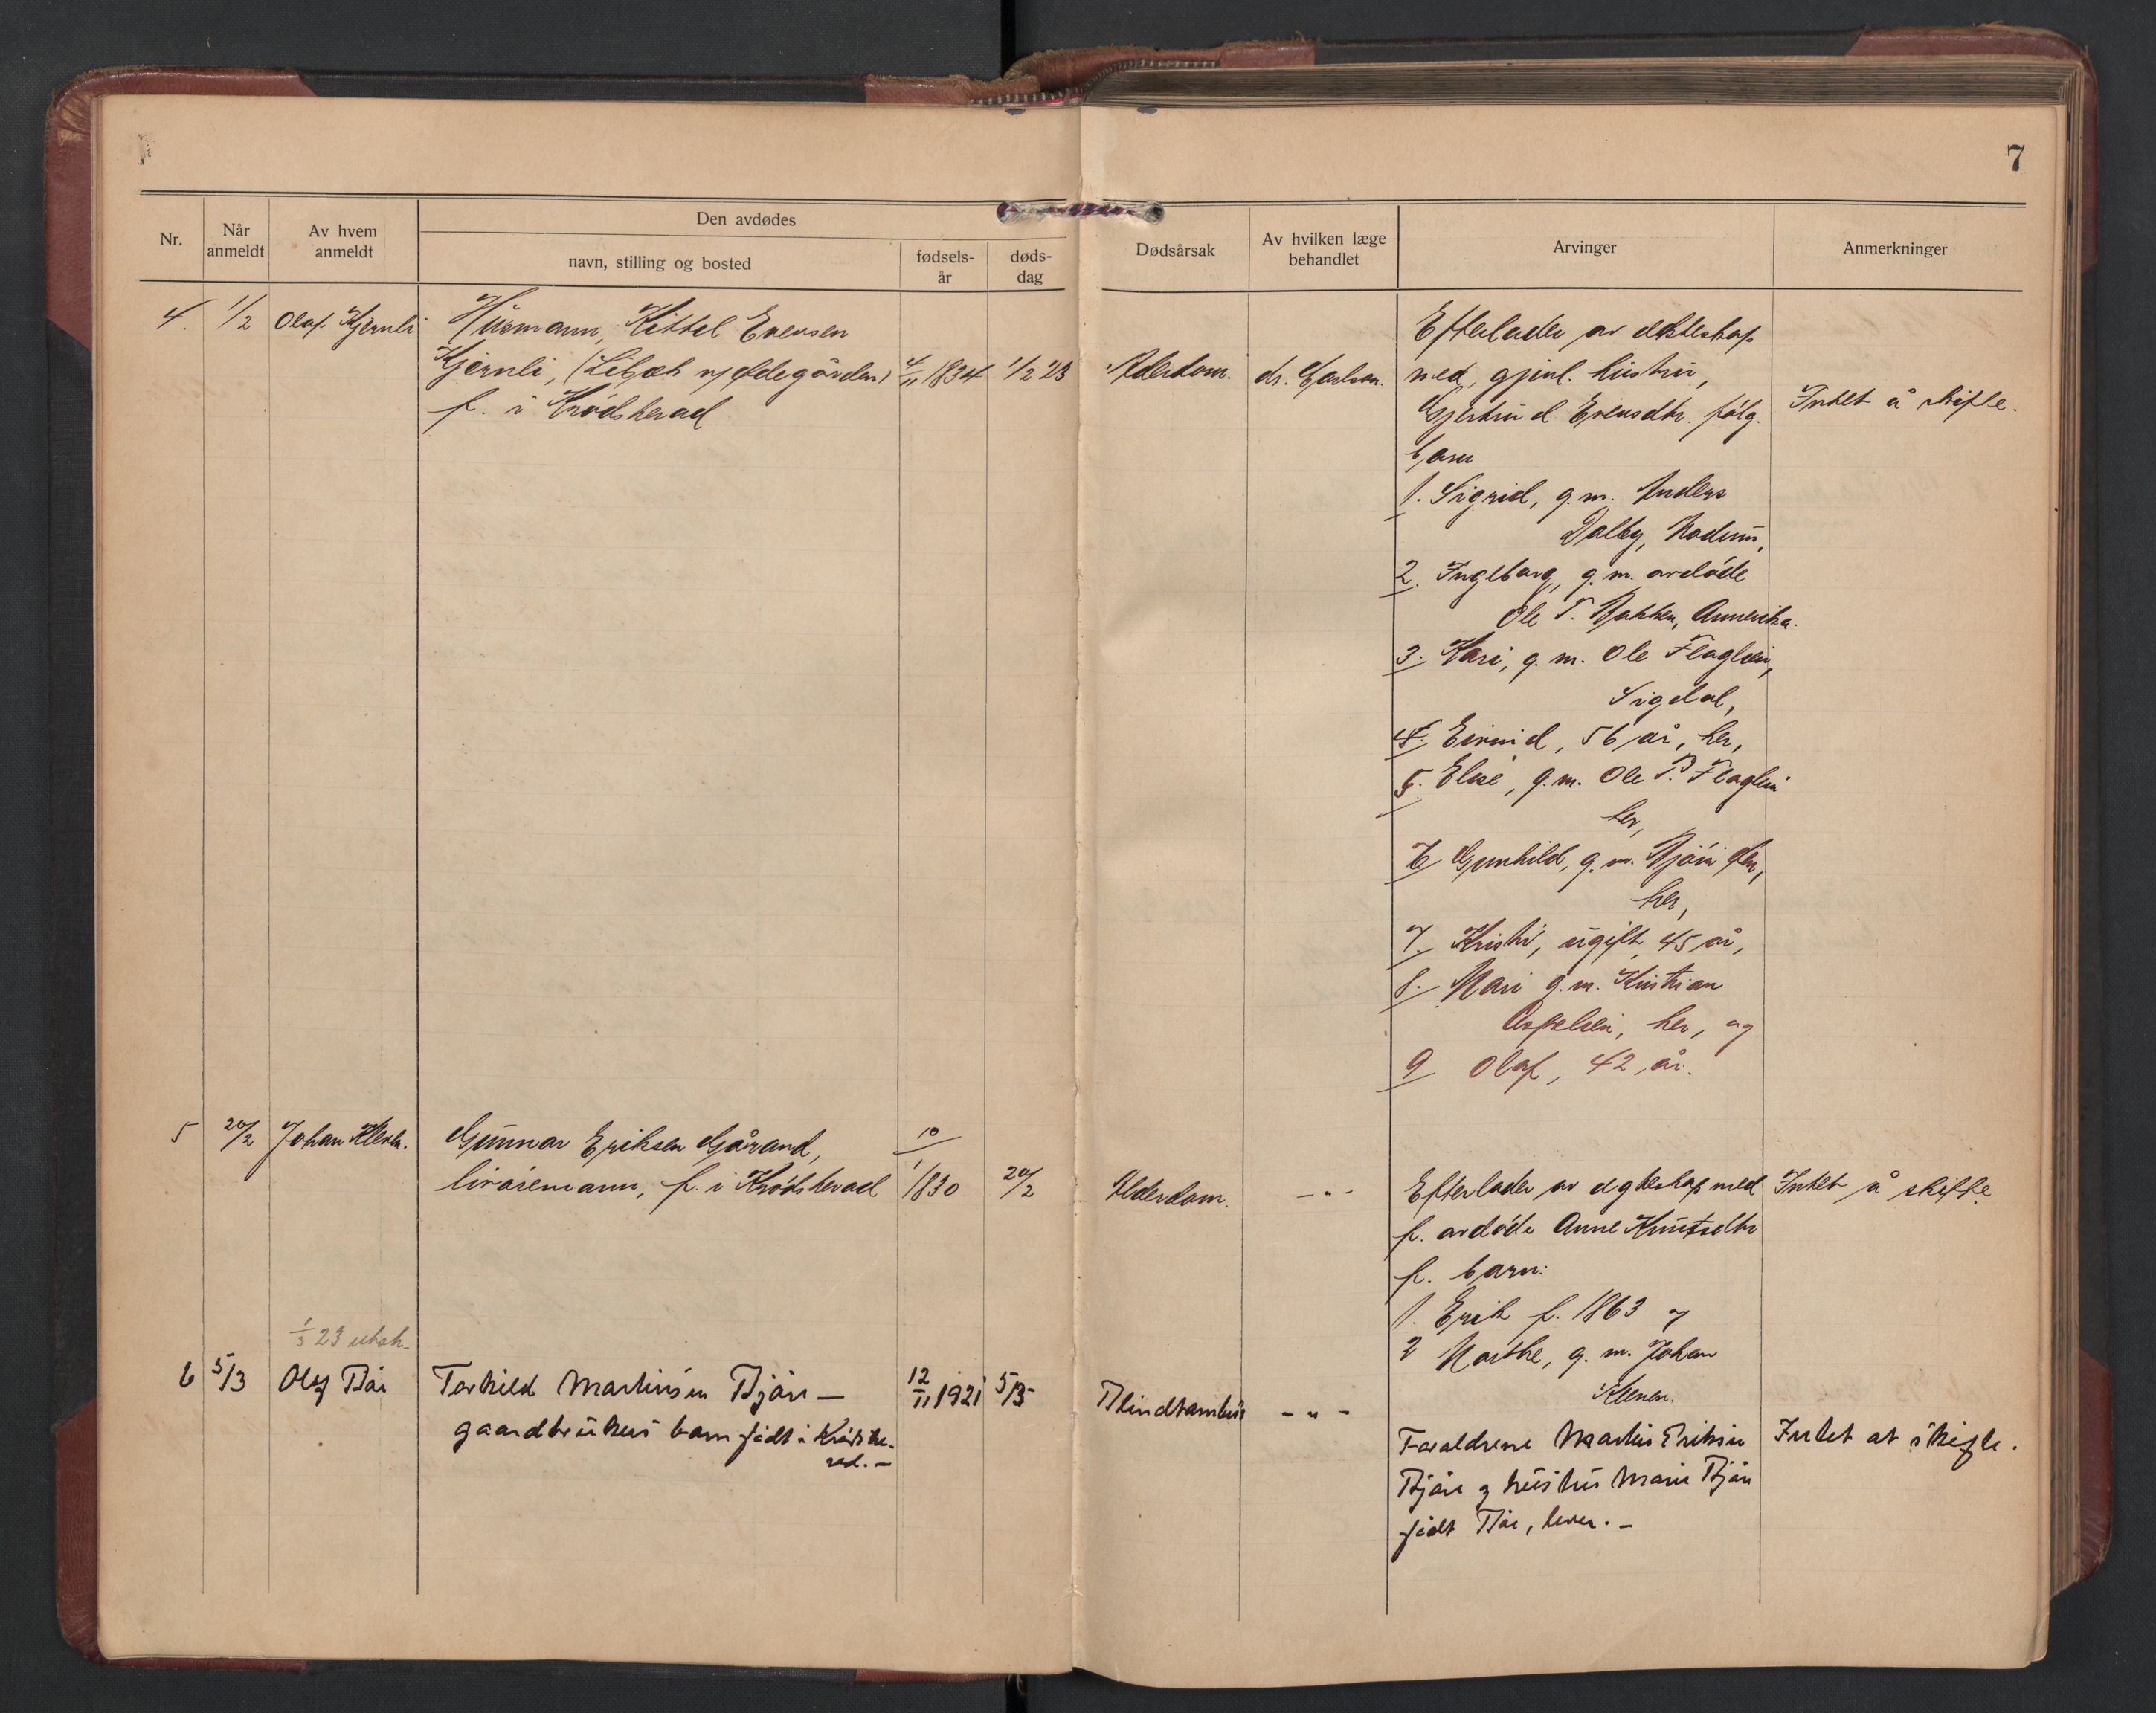 7
Nr.
Når anmeldt
Av hvem anmeldt
Den avdødes
navn, stilling og bosted
fødsels- år
døds- dag
Dødsårsak
Av hvilken læge behandlet
Arvinger
Anmerkninger
4. 1/2 Olaf Kjernli Husmann, Kittel Evensen
Kjernli, 4/11 1834 1/2 23 Alderdom. dr.
f. i Krødsherad
Efterlader av ekteskap
med, gjenl. hustru,
Gjertrud Evensdtr. følg.
barn
1. Sigrid, g. m. Anders
Dalby, Modum,
2. Ingeborg, g. m. avdöde
Ole T. Bakken, Amerika.
3. Kari, g. m. Ole Flaglien,
Sigdal,
4. Eivind, 56 år, her,
5. Elise, g. m. Ole P. Flaglien
her,
6 Gunhild, g. m.
her,
7. Kristi, ugift, 45 år,
8. Mari g. m. Kristian
Aspelien, her, og
9 Olaf, 42 år.
Intet å skifte.
5 20/2 Johan Kleven. Gunnar Eriksen Gårand, 10
livöremann, f. i Krödsherad 1/1830 20/2 Alderdom. - " -
Efterlader av egteskap med
f. avdöde Anne Knutsdtr
f. barn:
1. Erik f. 1863 og
2 Marthe, g. m. Johan
Kleven.
Intet å skifte
1/3 23 utsk.
6 5/3 Olaf Bøe Torkild Martinsen Bjøre — 12/11 1921 5/3 Blindtarmbet. - " -
gaardbrukers barn født i Krødshe-
rad. —
Forældrene Martin Eriksen
Bjøre og hustru Marie Bjøre
født Bøe, lever. —
Intet at skifte.